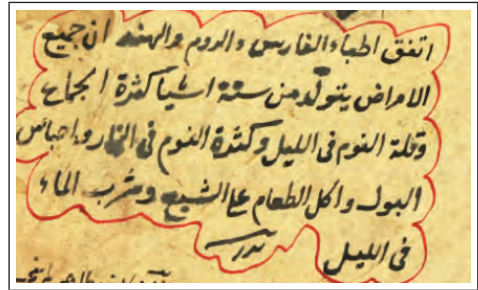 اتفق اطباء الفارس والروم والهند ان جميع
الامراض يتولّد من ستة اشيا كثرة الجماع
وقلة النوم فى الليل وكثرة النوم فى النهار واحباس
البول واكل الطعام على الشبع وشرب الماء
فى الليل